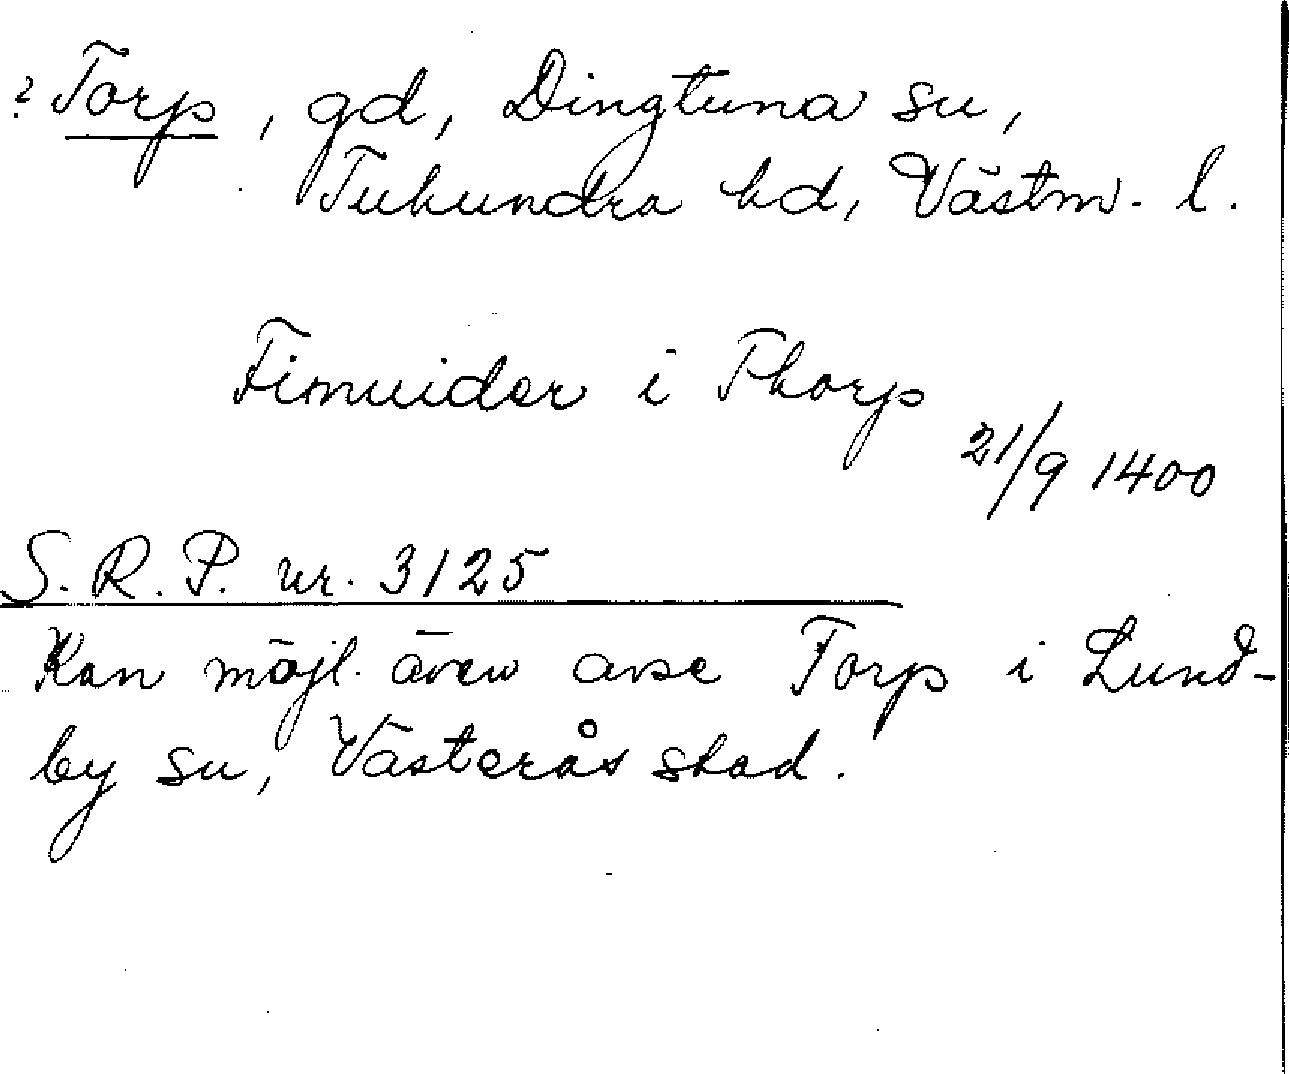 ? Torp, gd, Dingtuna sn,
Tuhundra hd, Västm. l.
Finuider i Thorp
21/9 1400
S.R.P. nr. 3125
Kan möjl. även avse Torp i Lund-
by sn, Västerås stad.